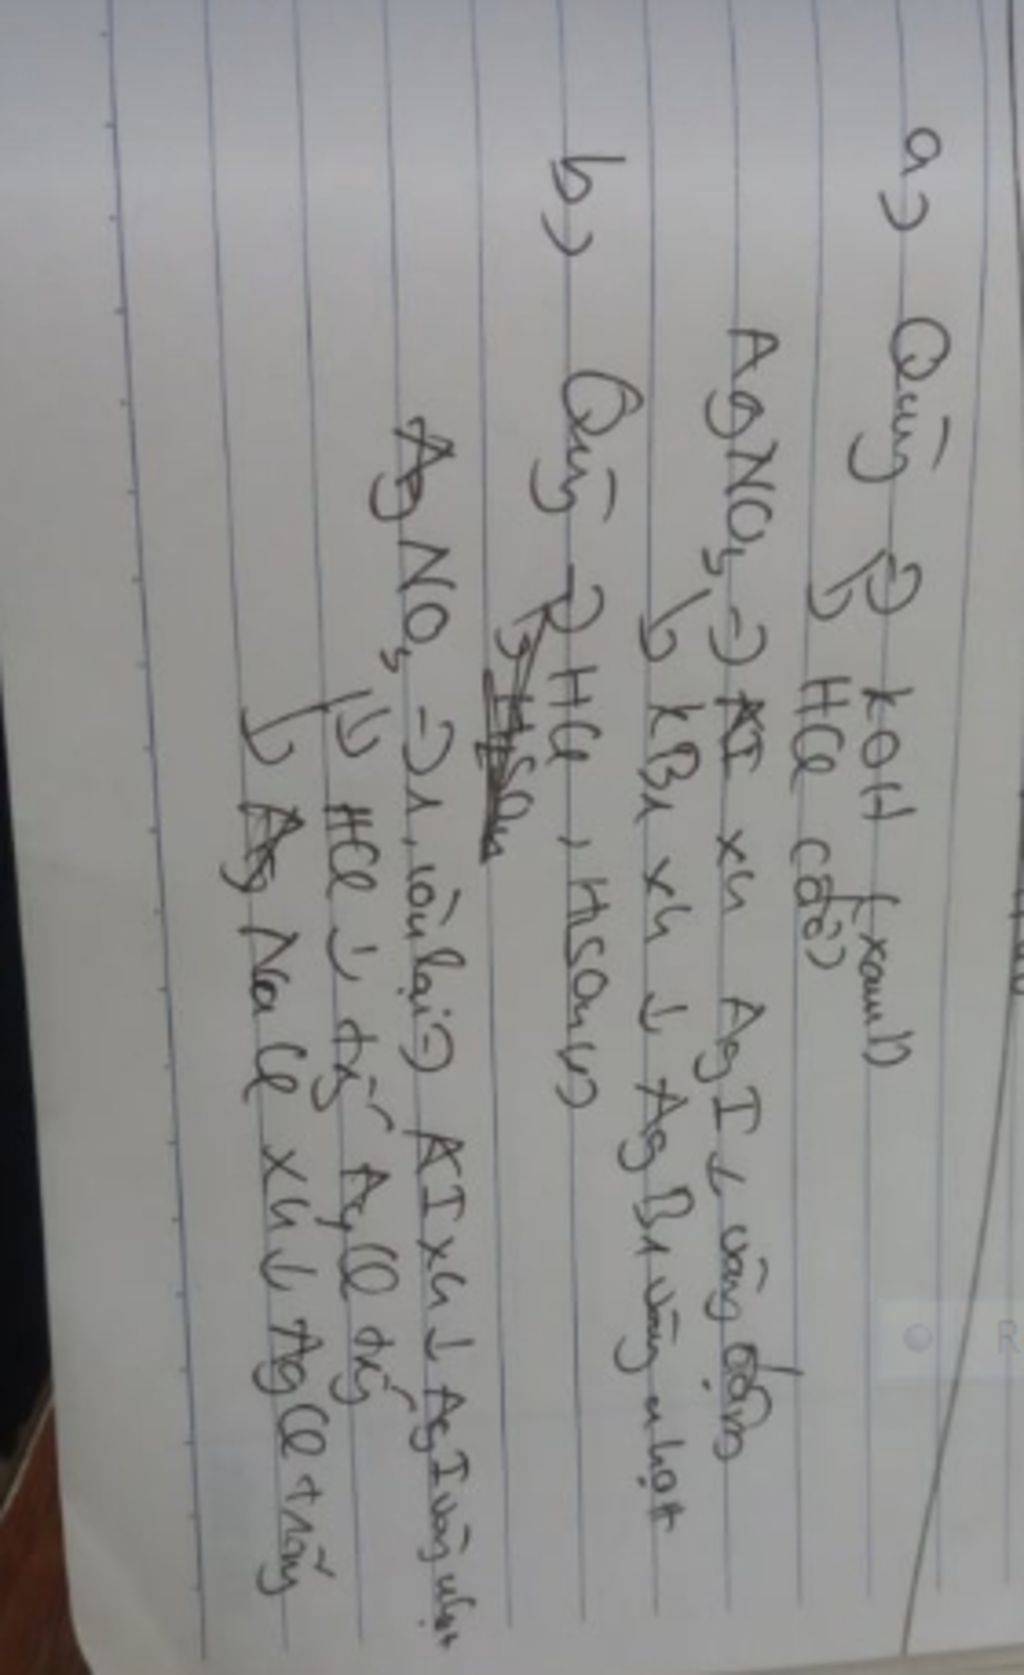 a) Quỳ → KOH (xanh)
↳ HCl (đỏ)
AgNO3 → KI xh AgI ↓ vàng đậm
↳ KBr xh ↓ AgBr vàng nhạt
b) Quỳ → HCl, HNO3
AgNO3 → còn lại → KI xh ↓ AgI vàng nhạt
↳ HCl ↓ trắng AgCl trắng
↳ NaCl xh ↓ AgCl trắng
R